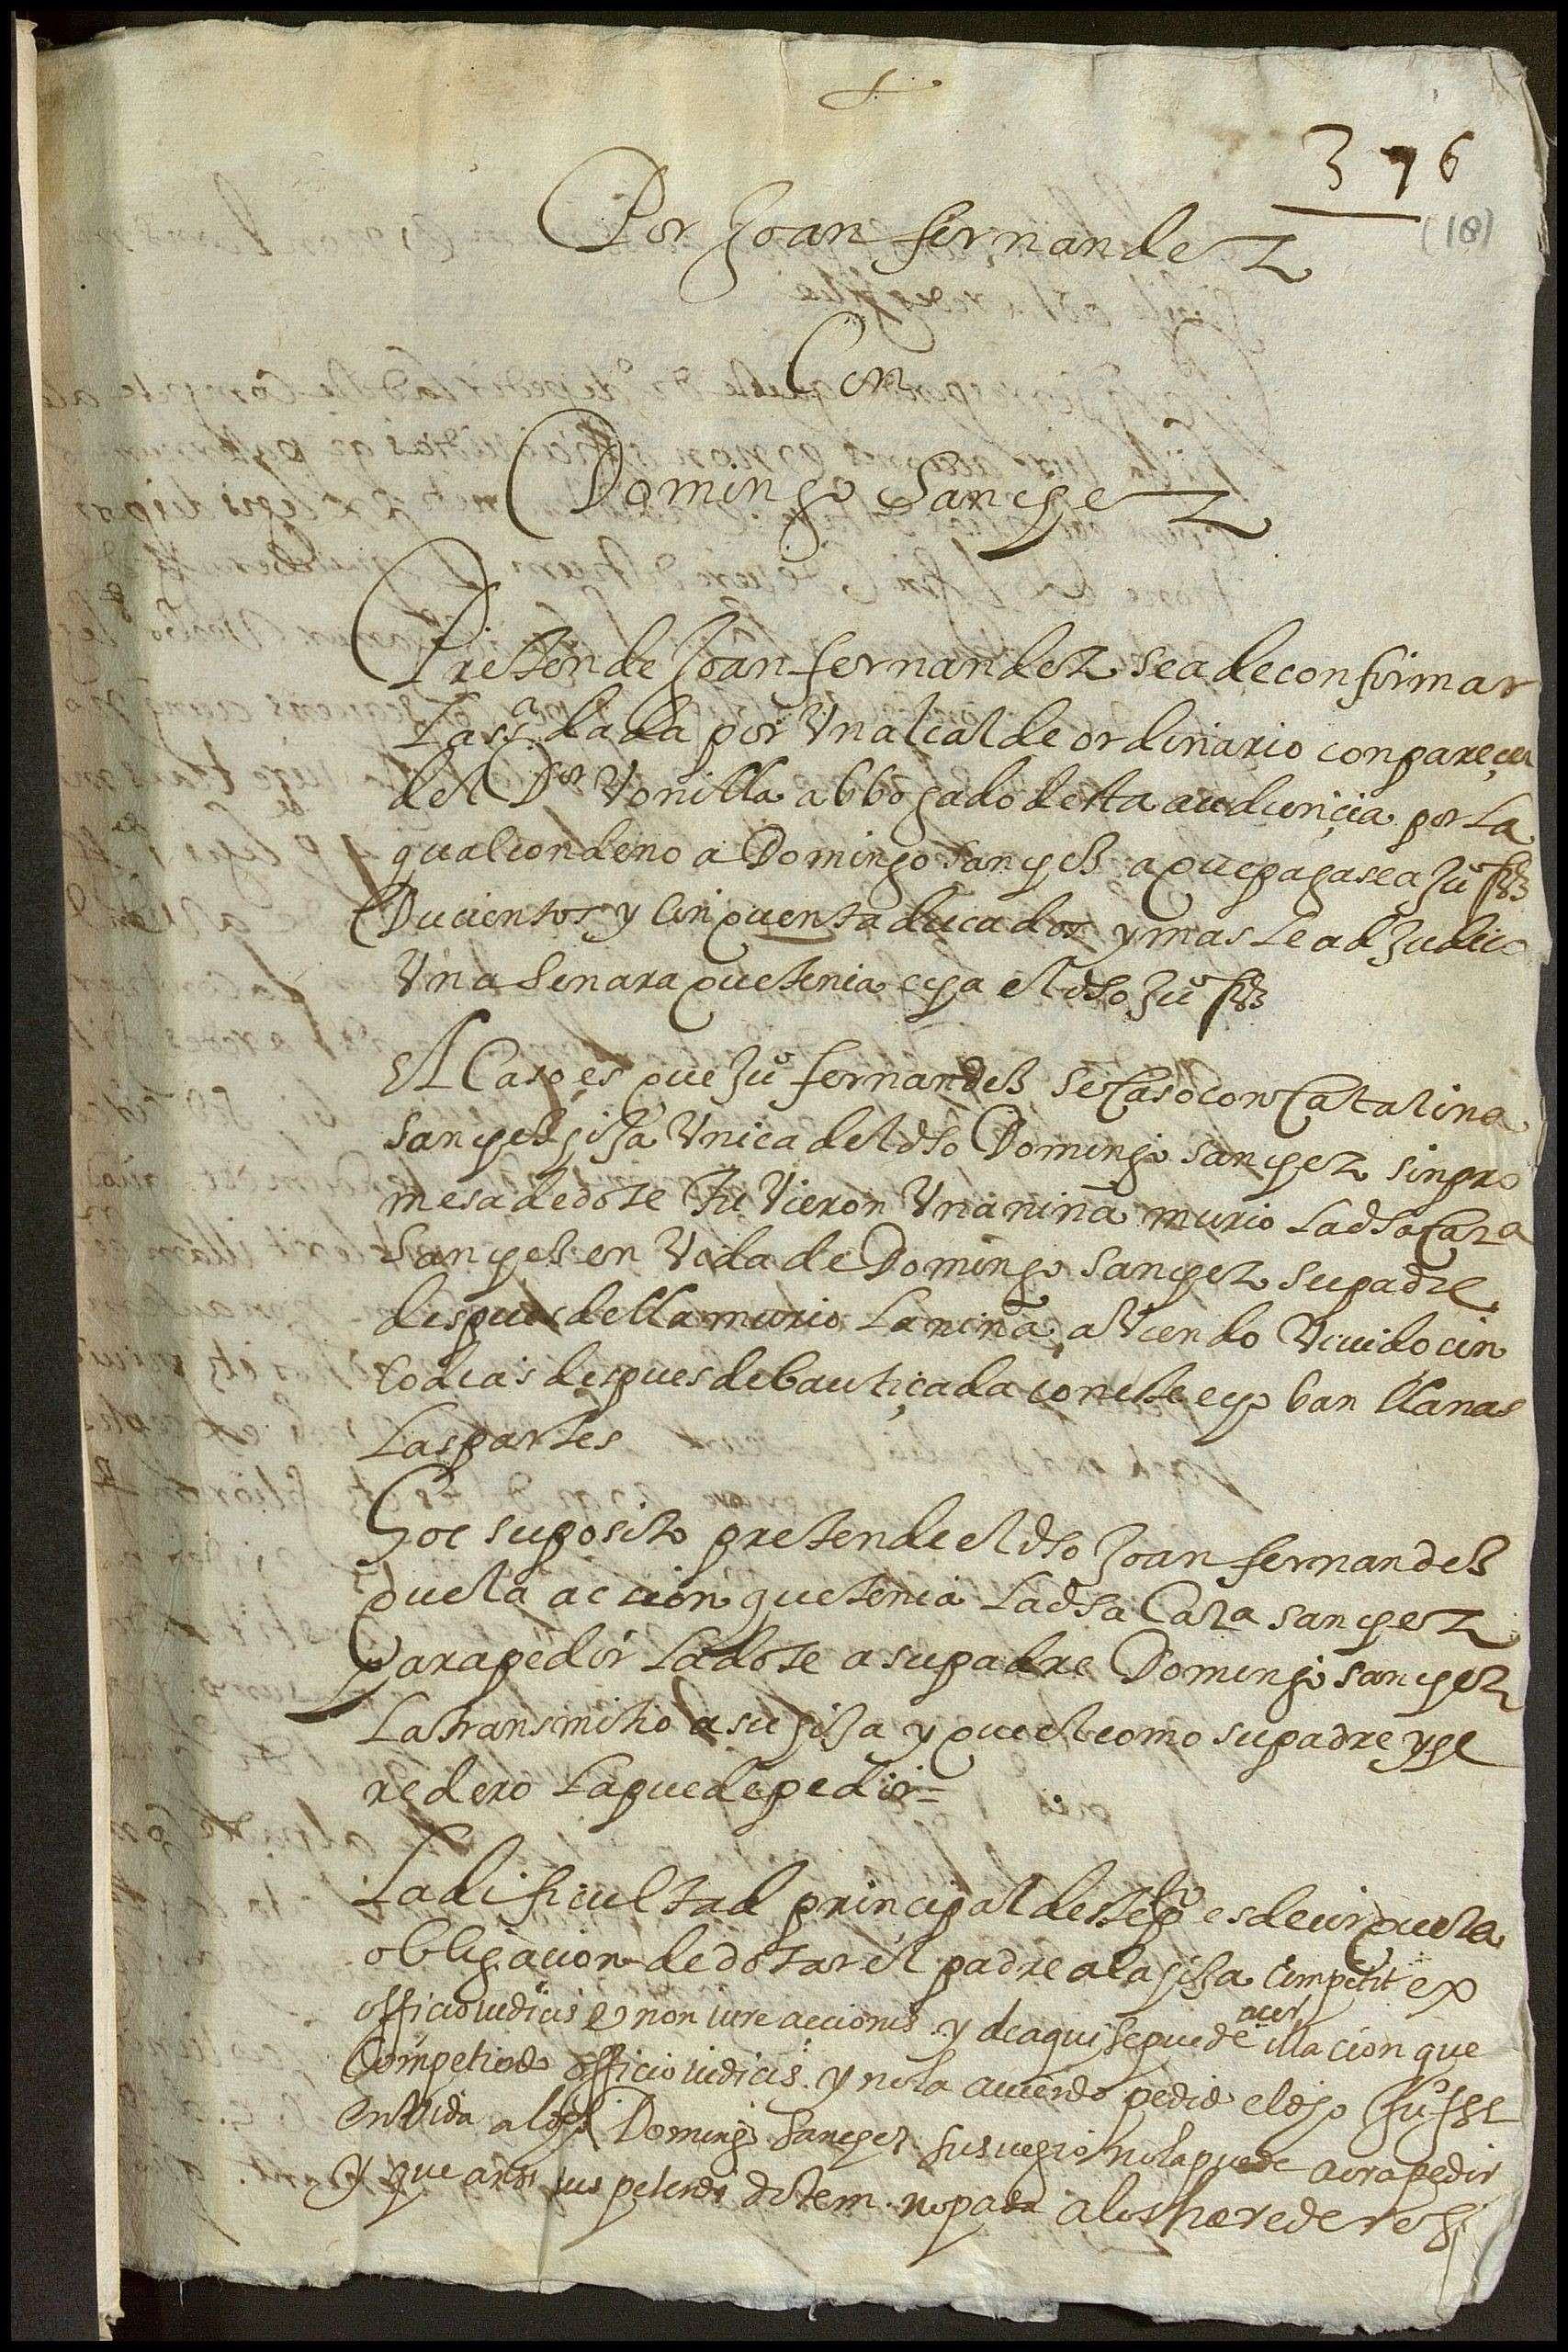 376
(18)
Por Joan fernandez
Con
Domingo Sanchez
Pretende Joan fernandez se a de confirmar
La sª dada por Un alcalde ordinario con pareçer
del Dor Vonilla abbogado desta audiençia por La
qual condeno a Domingo Sanchez a que pagase a Juº frz
Ducientos y cinquenta ducados y mas le adjudico
Una senara que tenia echa el dho Juº frz
El Caso es que Juº fernandez se Caso con Catalina
sanchez hija Unica del dho Domingo sanchez sin pro
mesa de dote Tu Vieron Una niña murio la dha Cata
Sanchez en Vida de Domingo sanchez su padre
despues della murio La niña, aViendo Viuido cin
co dias despues de bautiçada con este echo ban llanas
Las partes
Hoc suposito pretende el dho Joan fernandez
que la accion que tenia La dha Cata sanchez
Para pedir La dote a su padre Domingo sanchez
La transmitio a su hija y que el como su padre y he
redero La puede pedir =
La dificultad principal deste pº es decir que la
obligacion de dotar el padre a la hija Competit ex
officio iudicis & non iure acciones y de aqui se puede acer illacion que
Competiendo officio iudicis y no la auiendo pedido el dho Juº frz
En Vida al dho Domingo Sanchez su suegro no la puede aora pedir
Y que ansi ius petendi dotem no pasa a los herederos